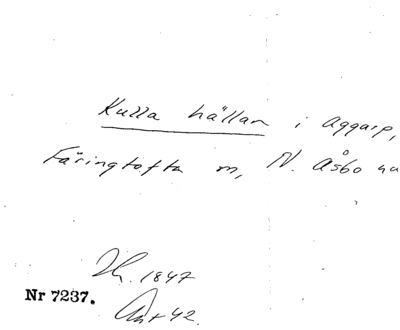 Kulla hällan i Aggarp,
Färingtofta m, N. Åsbo
1847
Nr 7237.
42.